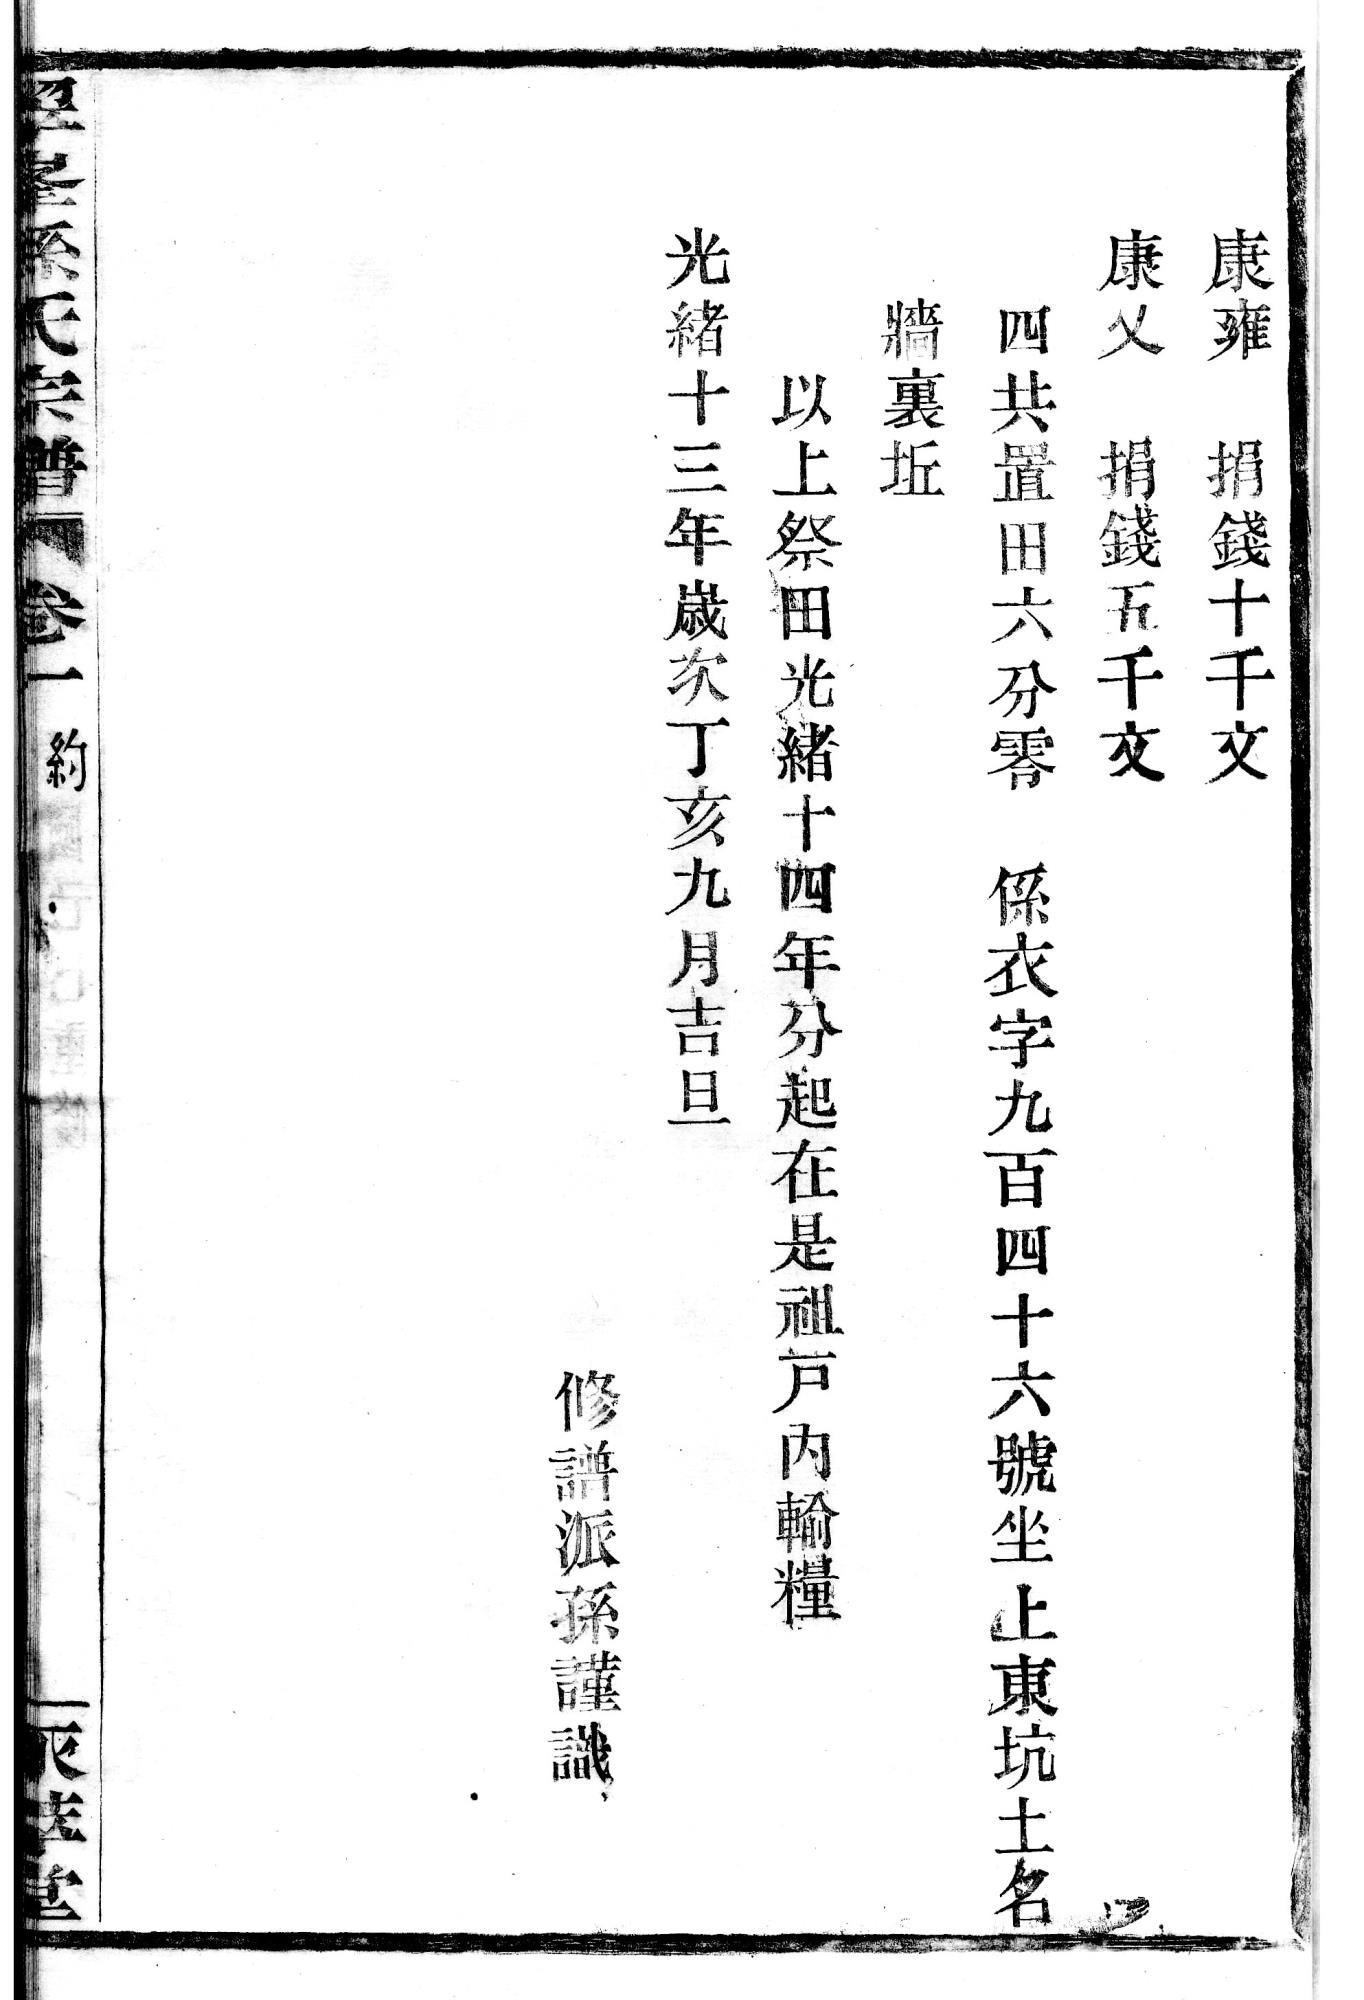 康雍　捐錢十千文
康乂　捐錢五千文
四共置田六分零　係衣字九百四十六號坐上東坑土名
牆裏坵
以上祭田光緒十四年分起在是祖戸內輸糧
光緒十三年歲次丁亥九月吉旦
修譜派孫謹識
孫氏宗譜　卷一　約
堂